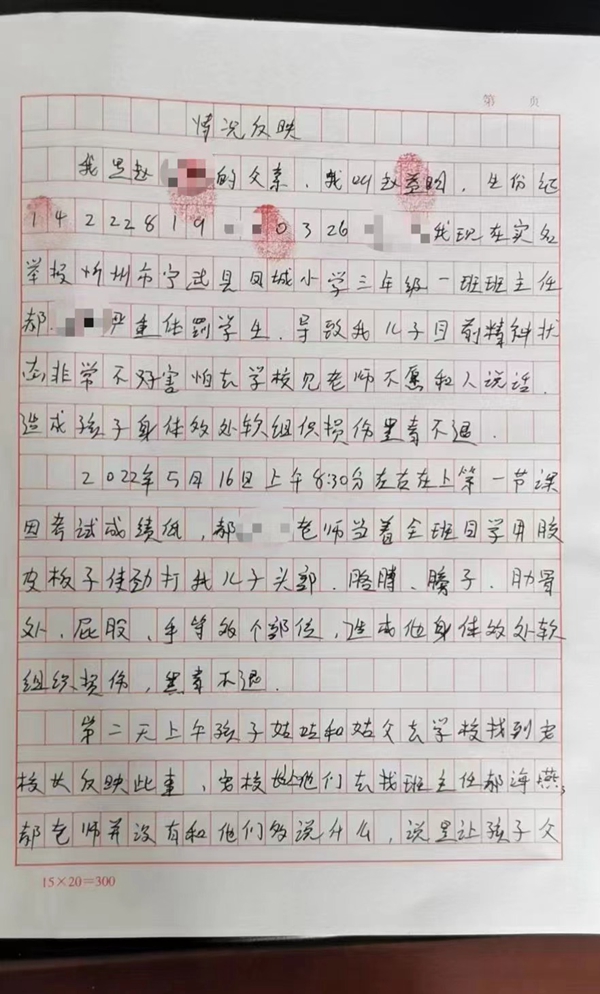 第 页
情况反映
我是赵 的父亲，我叫赵 ，身份证
14222819 0326 我现在实名
举报忻州市宁武县凤城小学三年级一班班主任
郝 严重体罚学生．导致我儿子目前精神状
态非常不好害怕去学校见老师不愿和人说话．
造成孩子身体多处软组织损伤黑青不退．
2022年5月16日上午8:30分左右在上第一节课
因考试成绩低，郝 老师当着全班同学用胶
皮板子使劲打我儿子头部．胳膊、膀子．肋骨
处．屁股．手等多个部位，造成他身体多处软
组织损伤，黑青不退．
第二天上午孩子姑姑和姑父去学校找到 
校长反映此事， 校长让他们去找班主任郝 ，
郝老师并没有和他们多说什么，说是让孩子父
15×20=300